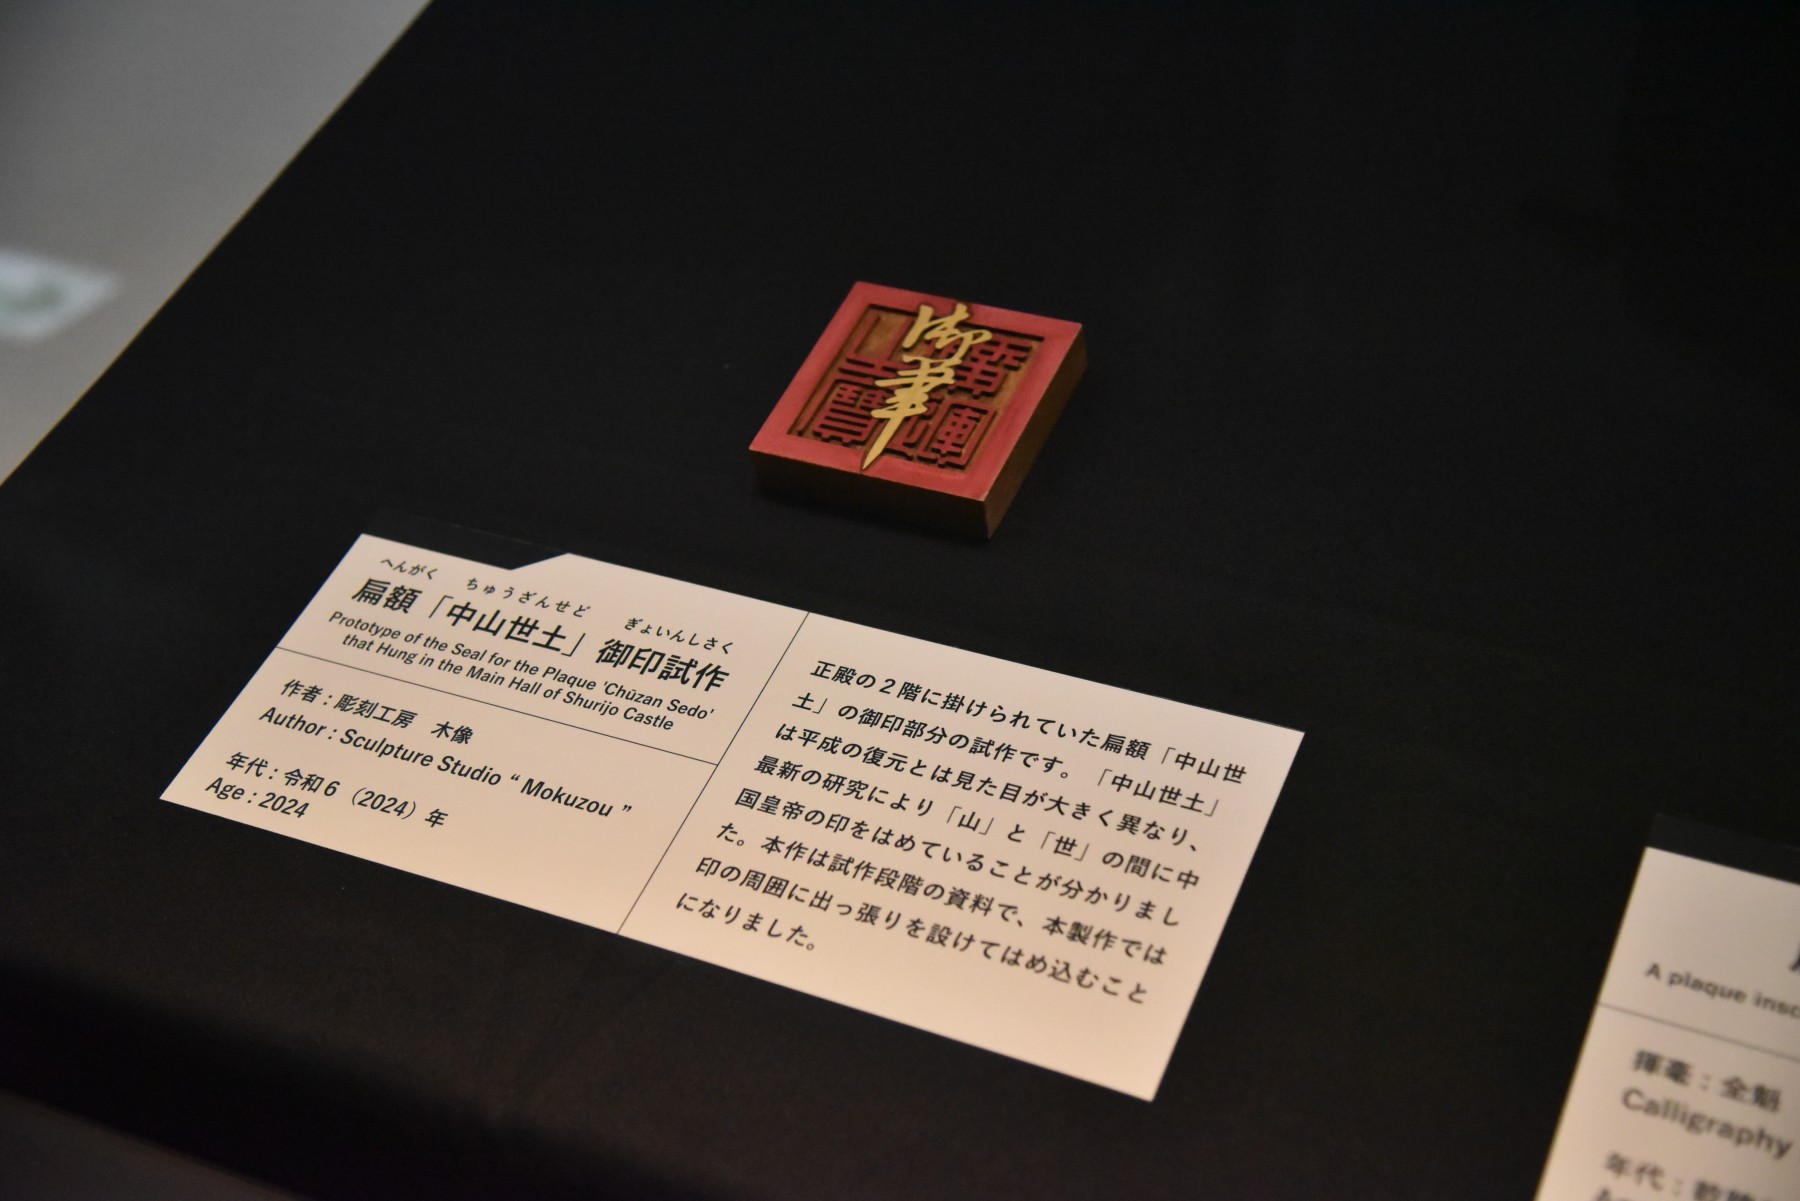 御筆
へんがく ちゅうざんせど ぎょいんしさく
扁額「中山世土」御印試作
Prototype of the Seal for the Plaque 'Chūzan Sedo'
that Hung in the Main Hall of Shurijo Castle
作者：彫刻工房　木像
Author : Sculpture Studio “ Mokuzou ”
年代：令和６（2024）年
Age : 2024
正殿の２階に掛けられていた扁額「中山世
土」の御印部分の試作です。「中山世土」
は平成の復元とは見た目が大きく異なり、
最新の研究により「山」と「世」の間に中
国皇帝の印をはめていることが分かりまし
た。本作は試作段階の資料で、本製作では
印の周囲に出っ張りを設けてはめ込むこと
になりました。
A plaque
揮毫：全魁
Calligraphy
年代：